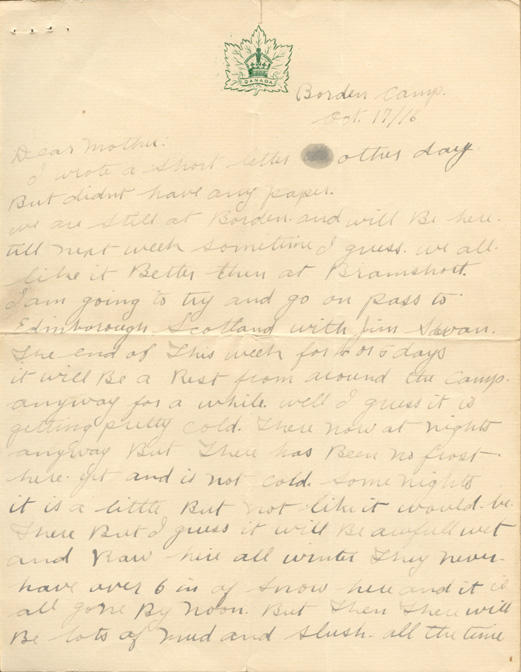 CANADA
Borden Camp.
Oct. 17/16
Dear Mother.
I wrote a short letter other day
But didnt have any paper.
we are still at Borden and will Be here.
till next week sometime I guess. we all.
like it Better then at Bramshott.
I am going to try and go on pass to
Edinborough, Scotland with Jim
The end of This week for or 6 days
it will Be a Rest from around the Camp.
anyway for a while. well I guess it is
getting pretty cold. There now at nights
anyway But There has Been no frost.
here yet and is not cold. some nights
it is a little But not like it would. be.
There But I guess it will Be awfull wet
and Raw here all winter They never.
have over 6 in of snow here and it is
all gone By noon. But Then There will
Be lots of mud and slush. all the time